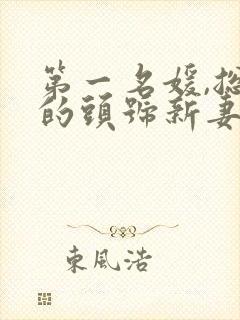 第一名媛,總
的頭號新妻
東風浩